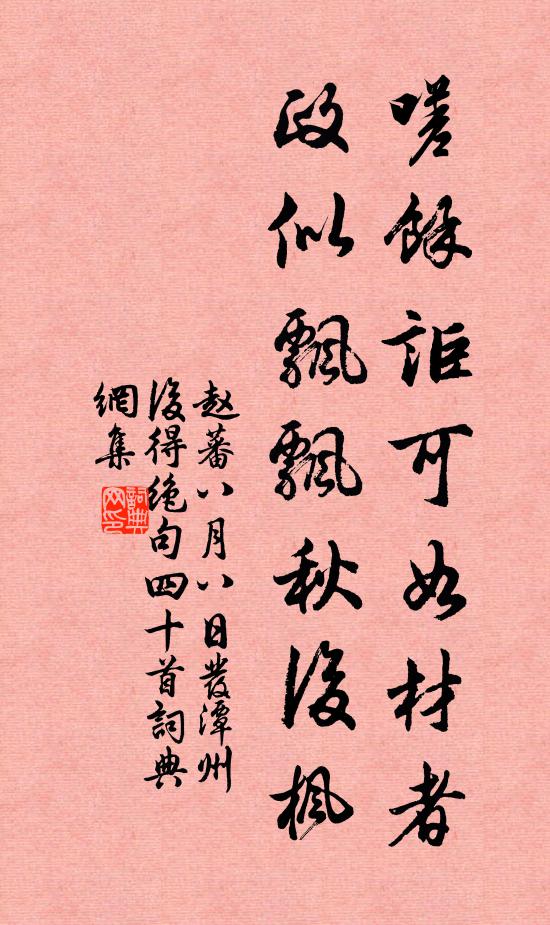 嗟餘詎可如材者
政似飄飄秋後枫
赵蕃八月八日發潭州
後得绝句四十首詞典
網集
詞典
网印